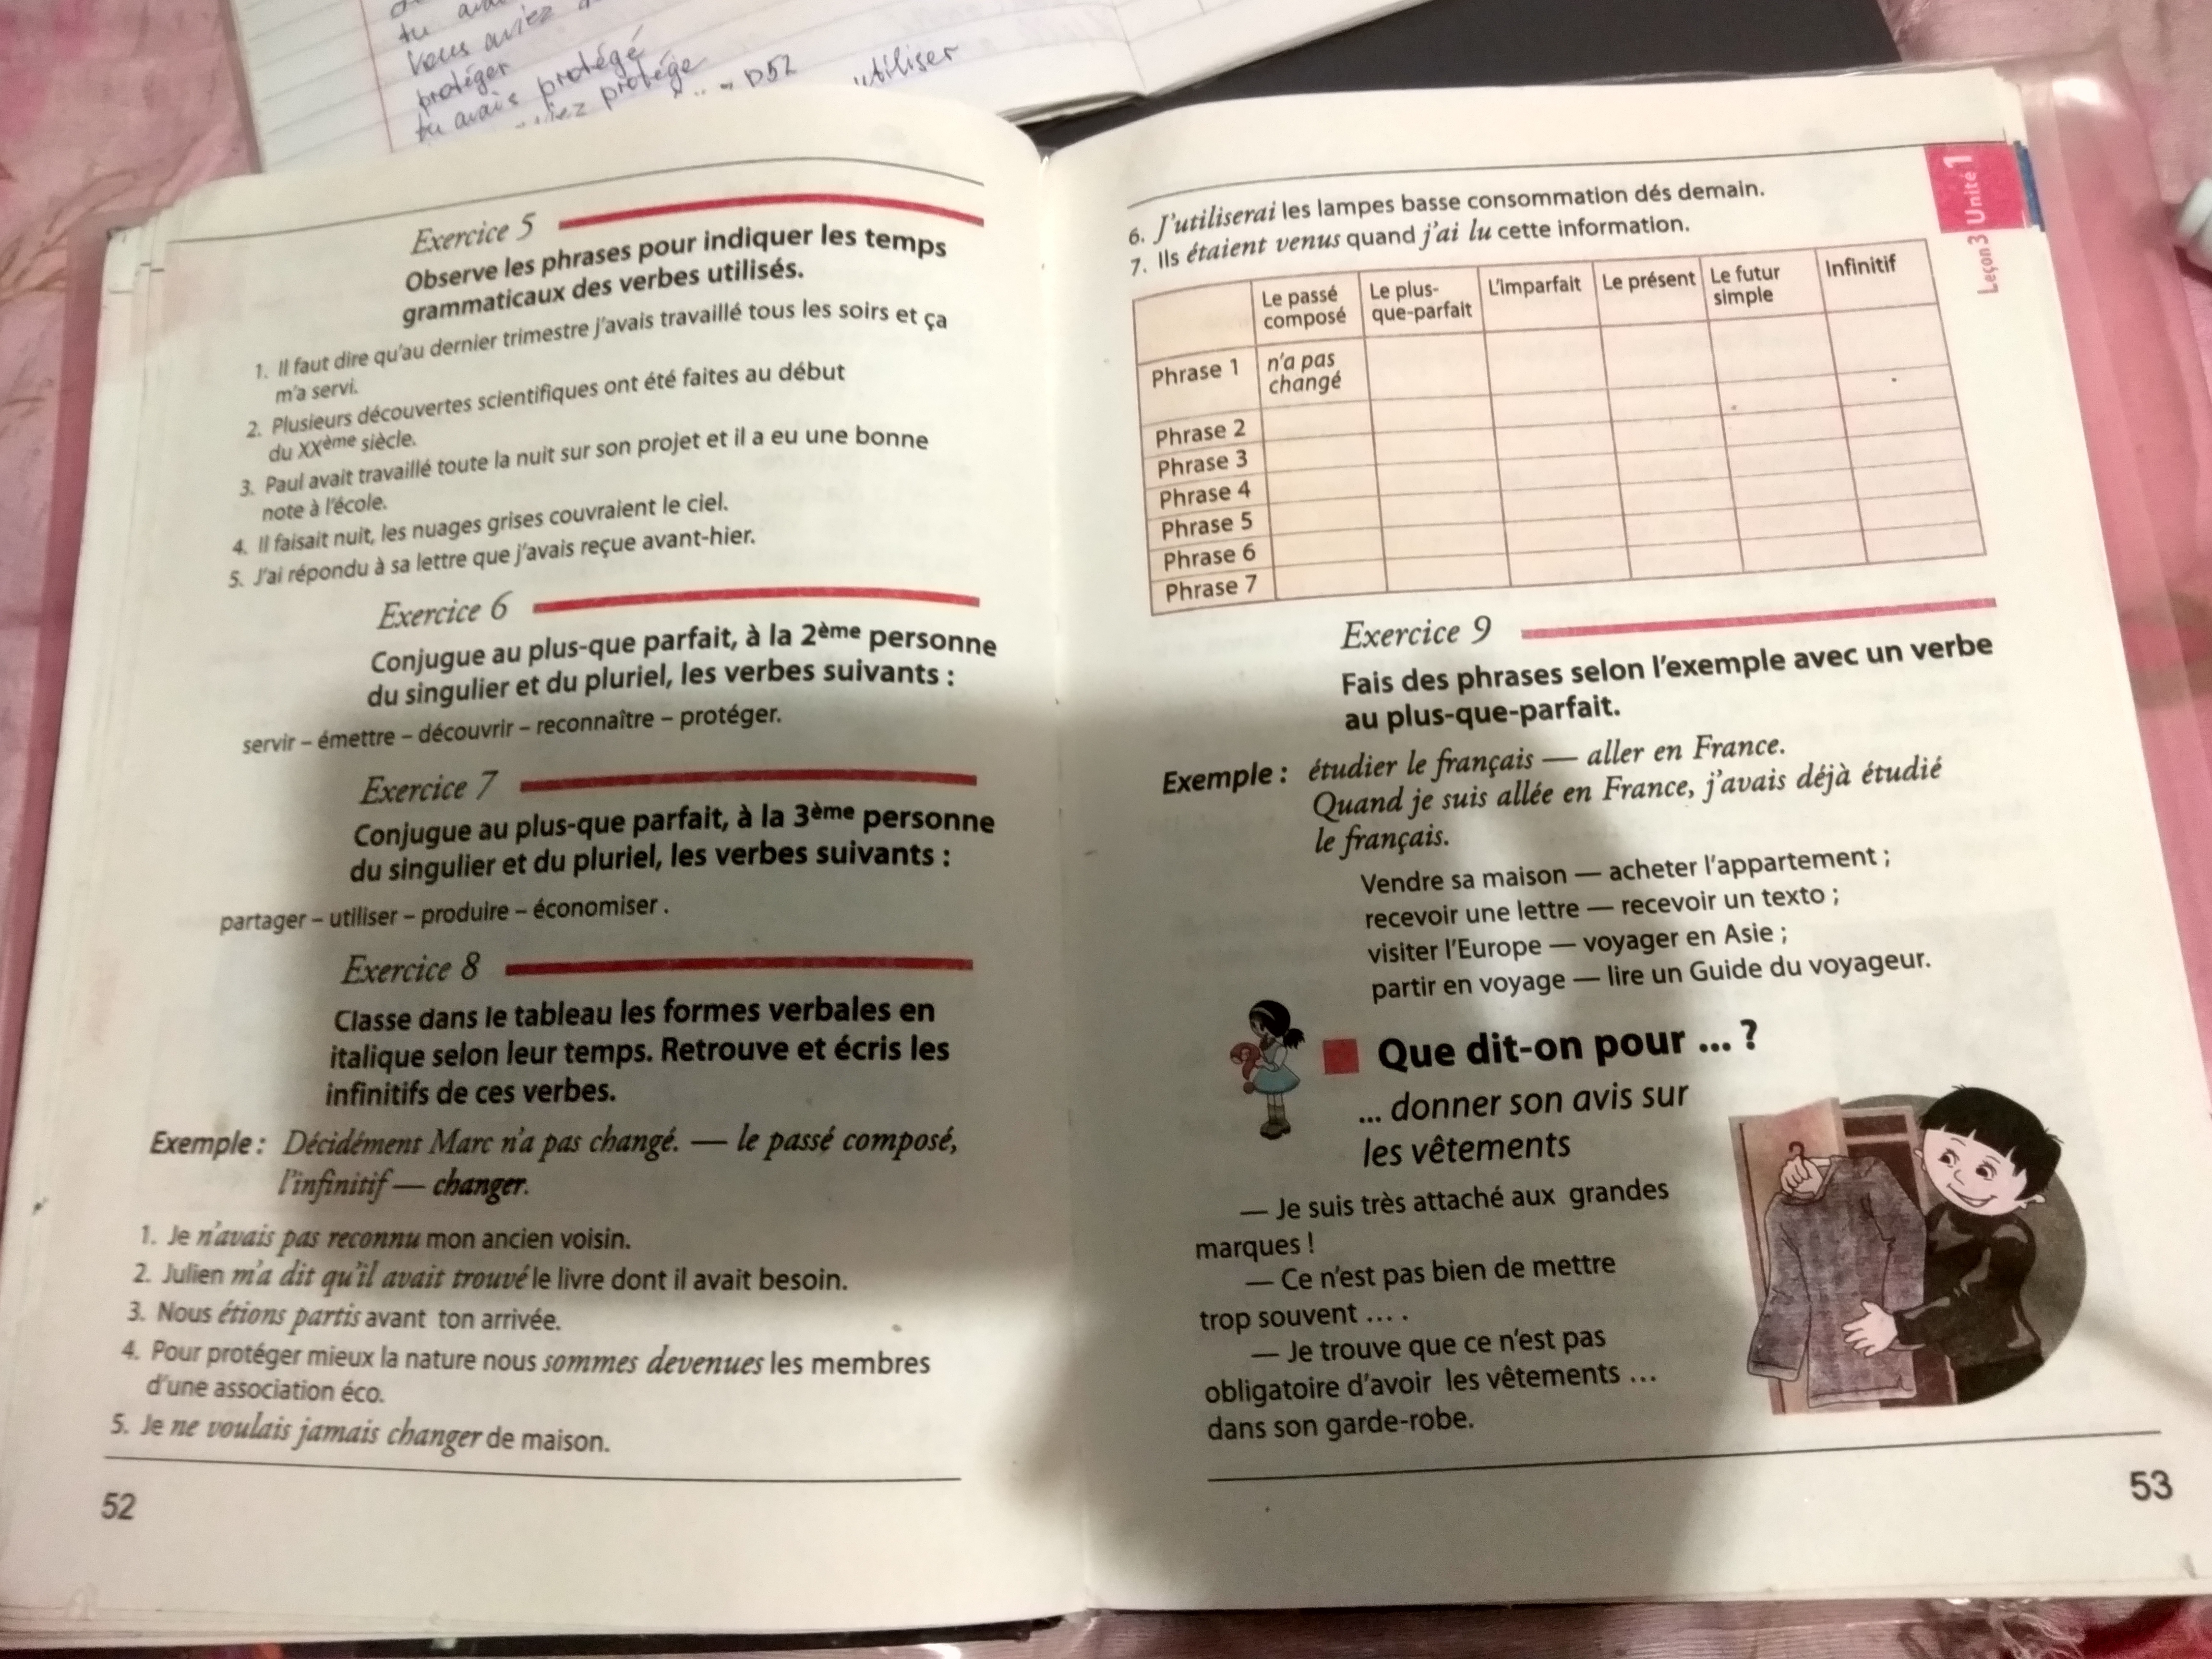 tu
Vous aviez
protéger
tu avais protégé
protégé
D52
utiliser
Exercice 5
Observe les phrases pour indiquer les temps
grammaticaux des verbes utilisés.
1. Il faut dire qu'au dernier trimestre j'avais travaillé tous les soirs et ça
m'a servi.
2. Plusieurs découvertes scientifiques ont été faites au début
du XXème siècle.
3. Paul avait travaillé toute la nuit sur son projet et il a eu une bonne
note à l'école.
4. Il faisait nuit, les nuages grises couvraient le ciel.
5. J'ai répondu à sa lettre que j'avais reçue avant-hier.
Exercice 6
Conjugue au plus-que parfait, à la 2ème personne
du singulier et du pluriel, les verbes suivants :
servir – émettre – découvrir – reconnaître – protéger.
Exercice 7
Conjugue au plus-que parfait, à la 3ème personne
du singulier et du pluriel, les verbes suivants :
partager – utiliser – produire – économiser .
Exercice 8
Classe dans le tableau les formes verbales en
italique selon leur temps. Retrouve et écris les
infinitifs de ces verbes.
Exemple : Décidément Marc n'a pas changé. — le passé composé,
l'infinitif — changer.
1. Je n'avais pas reconnu mon ancien voisin.
2. Julien m'a dit qu'il avait trouvé le livre dont il avait besoin.
3. Nous étions partis avant ton arrivée.
4. Pour protéger mieux la nature nous sommes devenues les membres
d'une association éco.
5. Je ne voulais jamais changer de maison.
52
Leçon 3 Unité 1
6. J'utiliserai les lampes basse consommation dés demain.
7. Ils étaient venus quand j'ai lu cette information.
Le passé composé
Le plus-que-parfait
L'imparfait
Le présent
Le futur simple
Infinitif
Phrase 1
n'a pas changé
Phrase 2
Phrase 3
Phrase 4
Phrase 5
Phrase 6
Phrase 7
Exercice 9
Fais des phrases selon l'exemple avec un verbe
au plus-que-parfait.
Exemple : étudier le français — aller en France.
Quand je suis allée en France, j'avais déjà étudié
le français.
Vendre sa maison — acheter l'appartement ;
recevoir une lettre — recevoir un texto ;
visiter l'Europe — voyager en Asie ;
partir en voyage — lire un Guide du voyageur.
Que dit-on pour ... ?
... donner son avis sur
les vêtements
— Je suis très attaché aux grandes
marques !
— Ce n'est pas bien de mettre
trop souvent ... .
— Je trouve que ce n'est pas
obligatoire d'avoir les vêtements ...
dans son garde-robe.
53